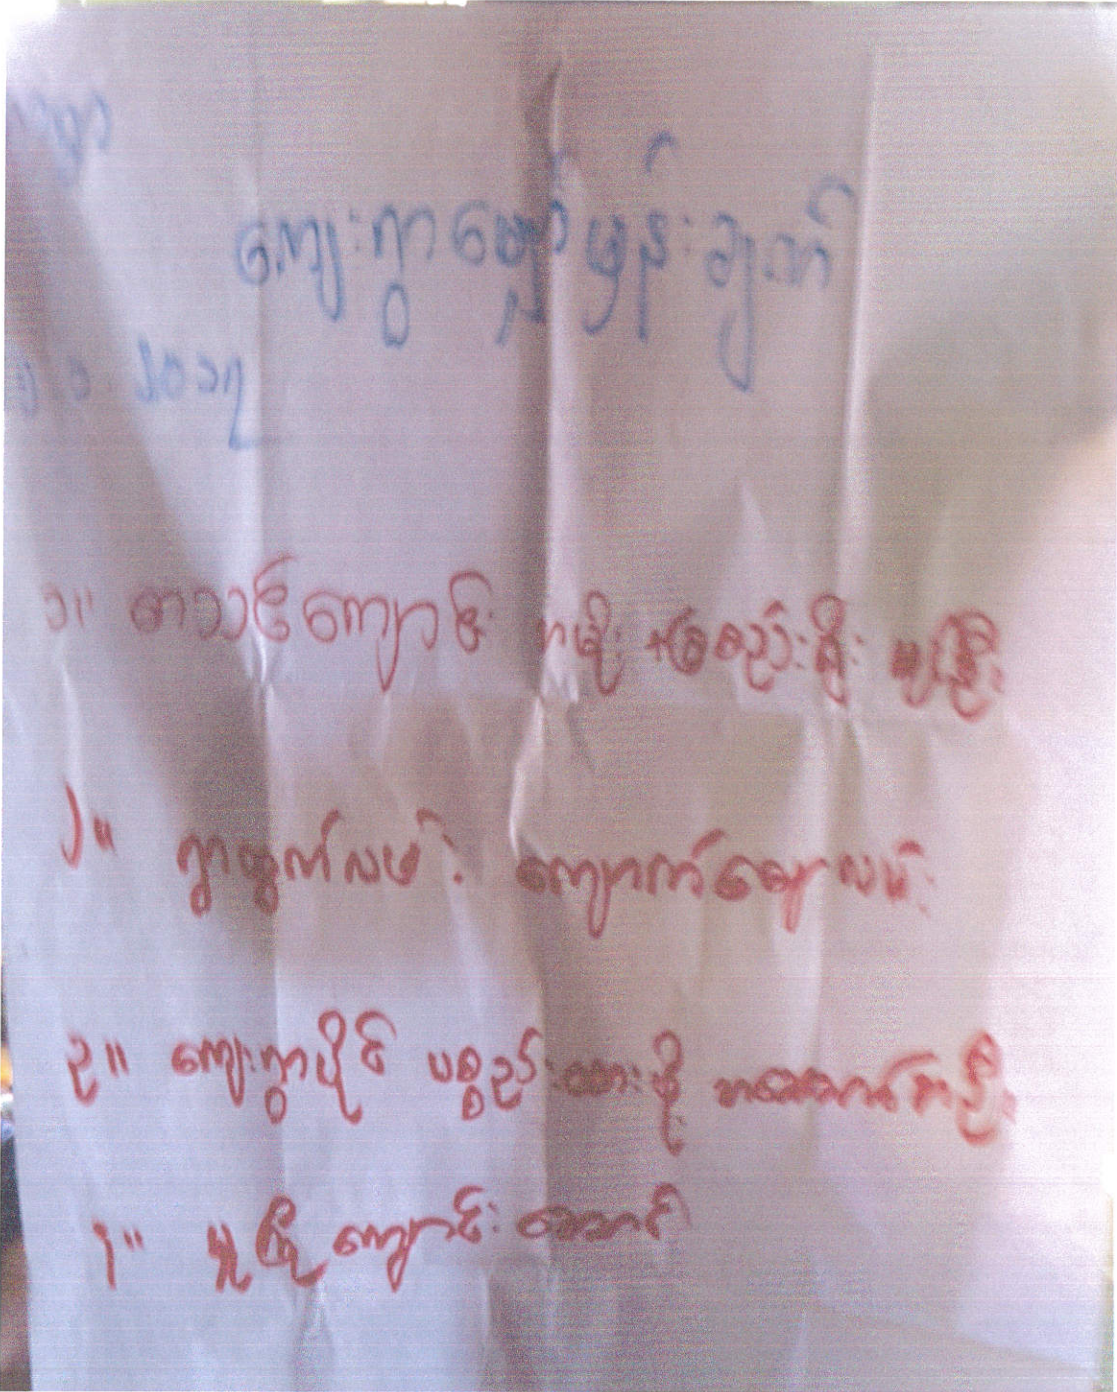 ကျေးရွာမျှော်မှန်းချက်
၁။ စာသင်ကျောင်း အမိုး + ခြံစည်းရိုး
၂။ ရွာထွက်လမ်း ကျောက်ချောလမ်း
၃။ ကျေးရွာပိုင် ပစ္စည်းထားဖို့ အဆောက်အဦး
၄။ မူကြိုကျောင်းဆောင်